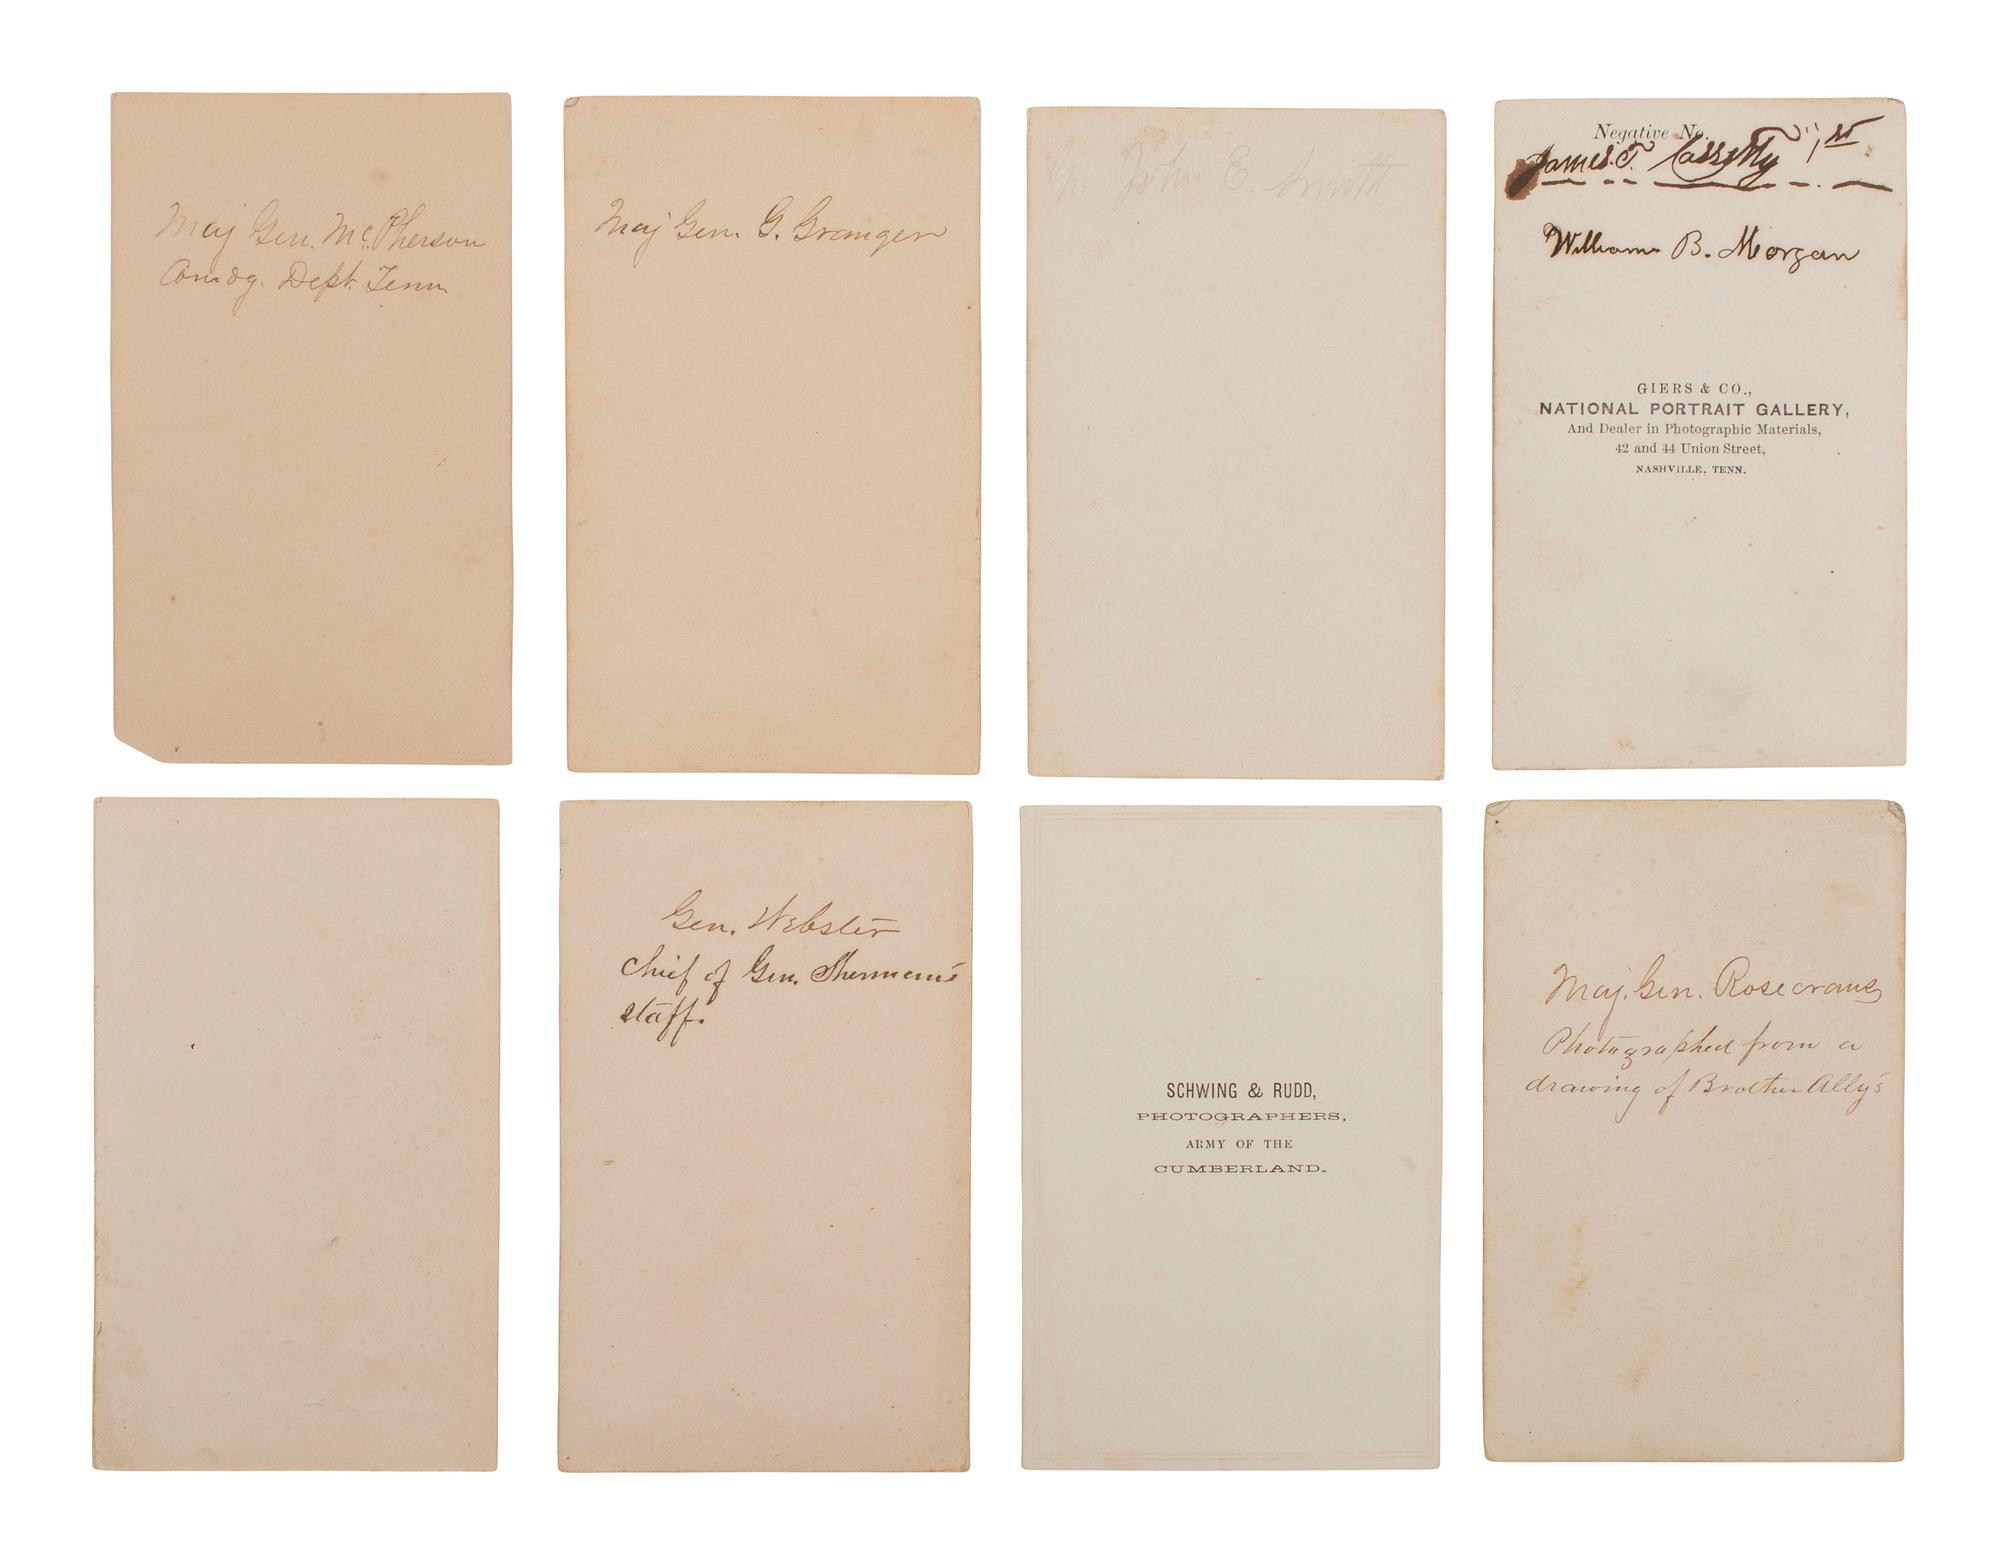 Maj Gen. McPherson
Comdg. Dept. Tenn.
Maj Gen. G. Granger
Gn John E. Smith
Negative No.
James. T. Cassetty 1st
William B. Morgan
GIERS & CO.,
NATIONAL PORTRAIT GALLERY,
And Dealer in Photographic Materials,
42 and 44 Union Street,
NASHVILLE, TENN.
Gen. Webster
Chief of Gen. Sherman's
staff.
SCHWING & RUDD,
PHOTOGRAPHERS,
ARMY OF THE
CUMBERLAND.
Maj. Gen. Rosecrans
Photographed from a
drawing of Brother Ally's